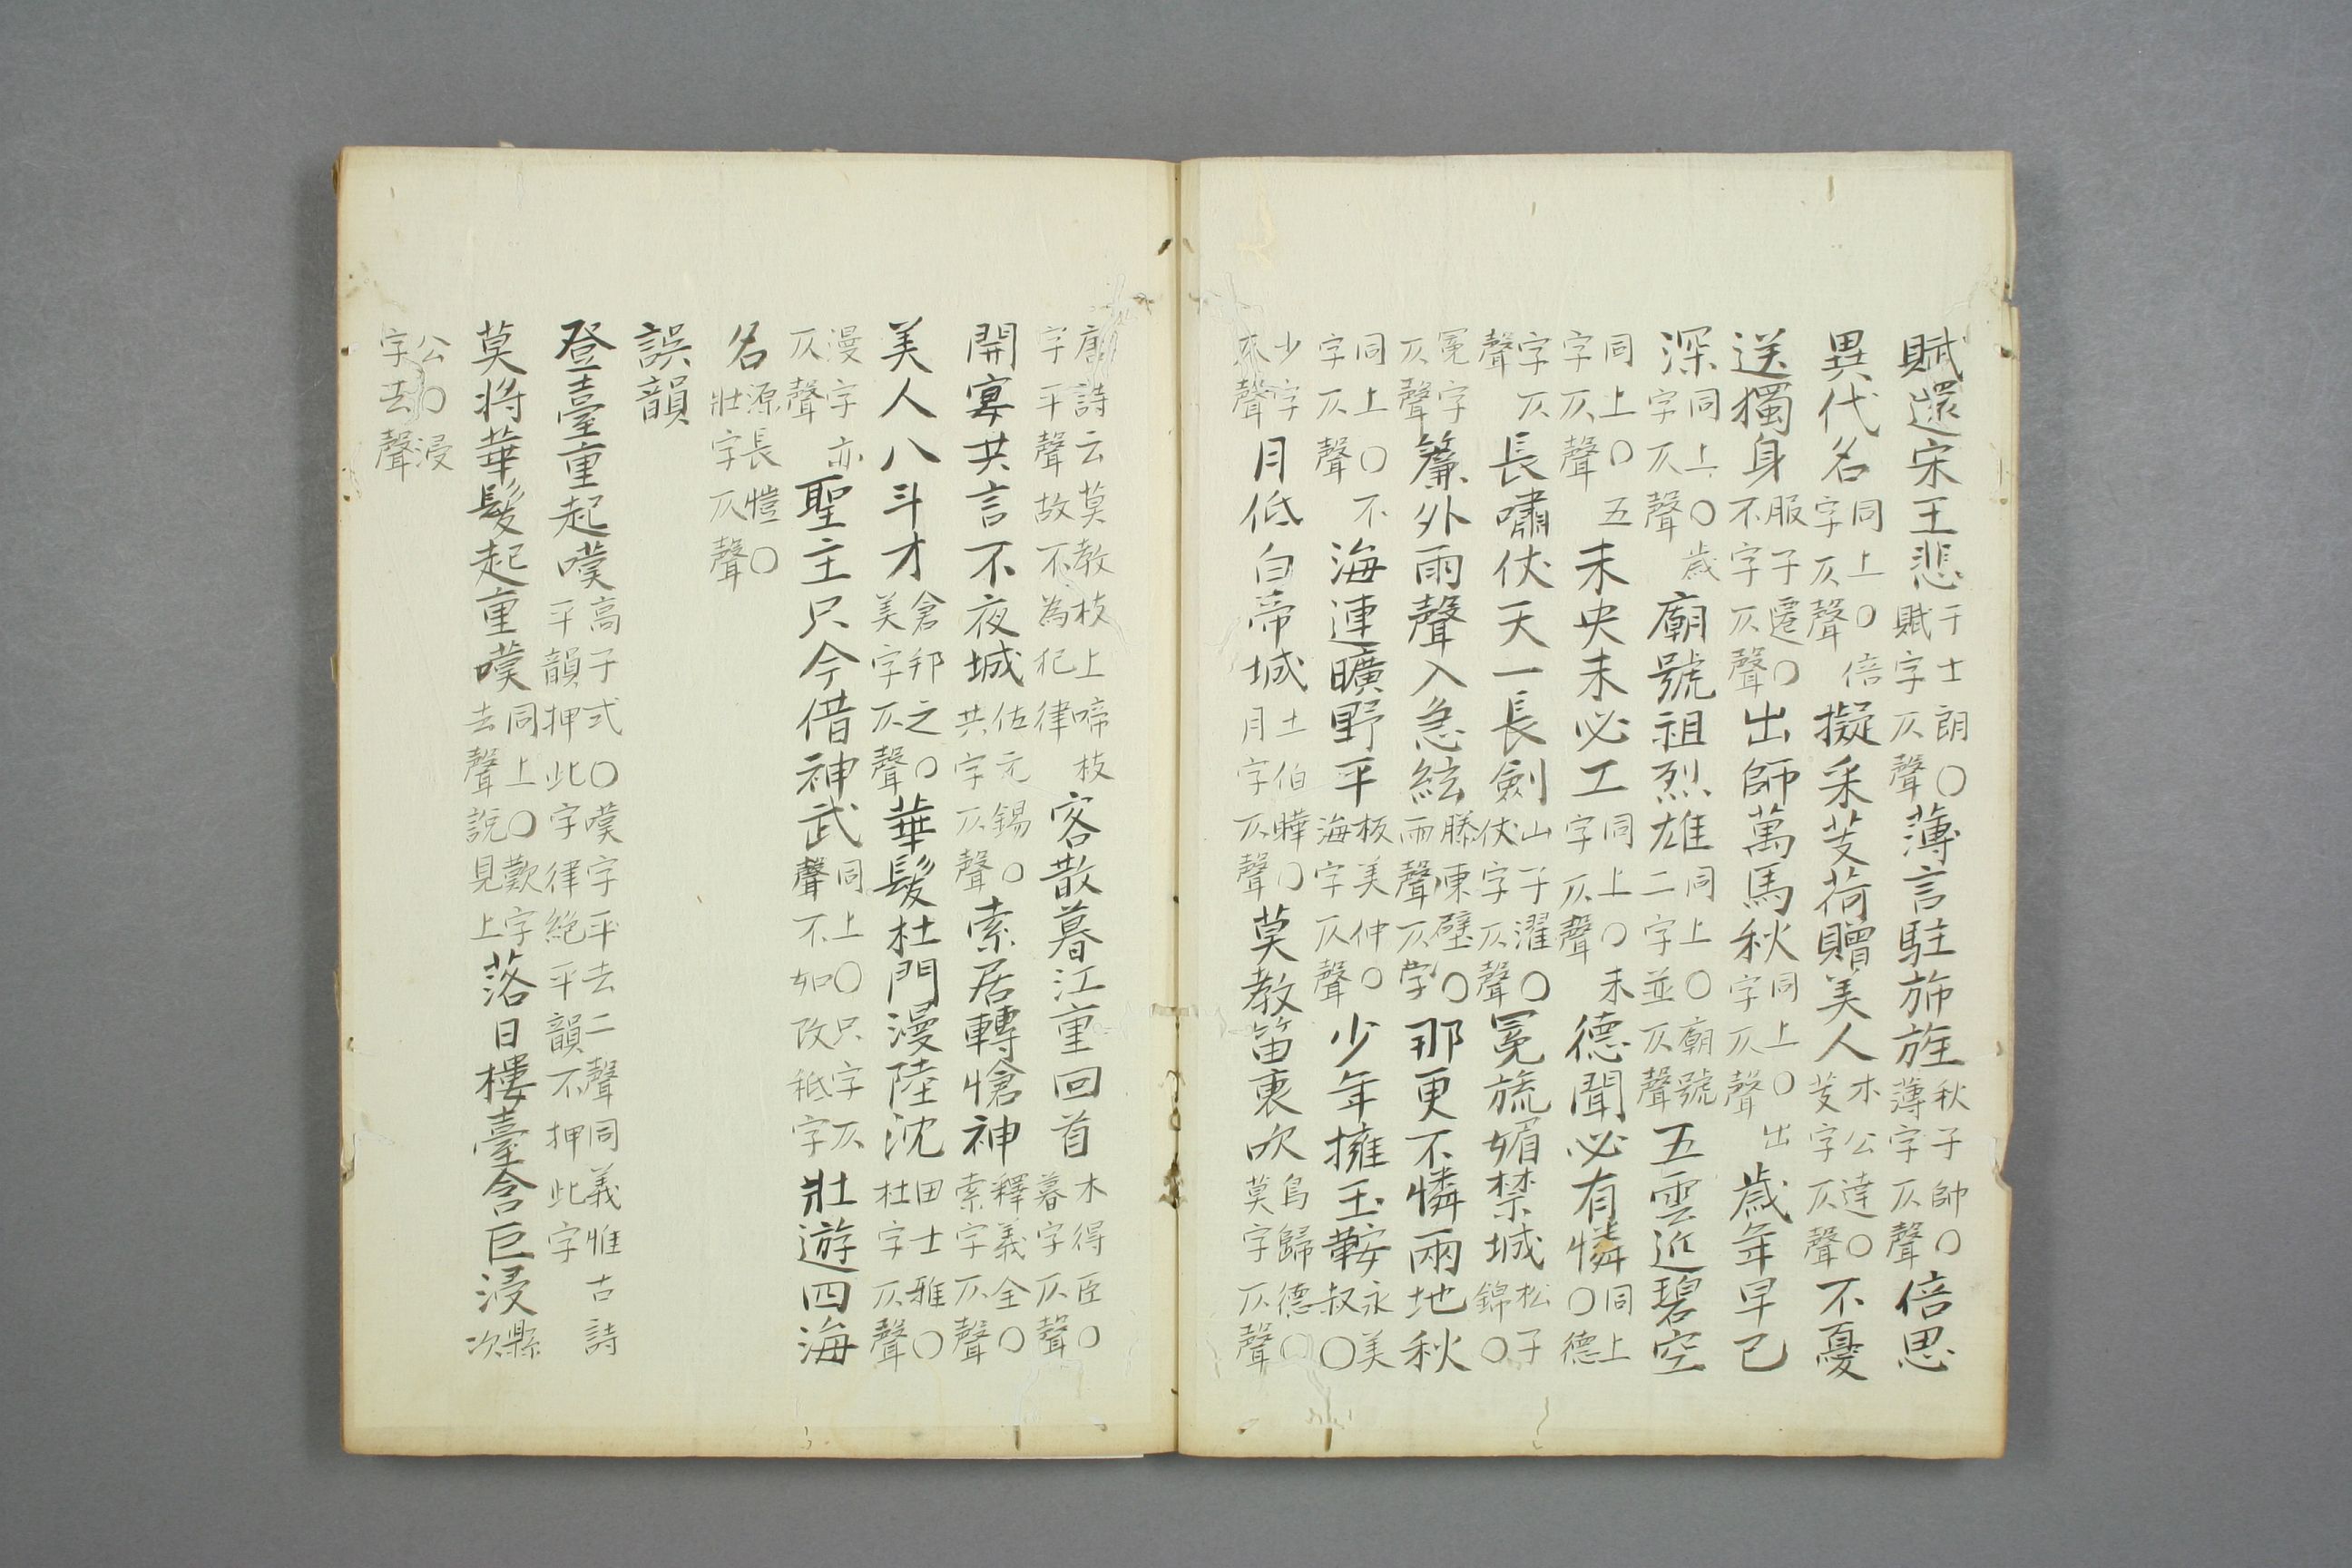 賦還宋王悲于士朗〇賦字仄聲薄言駐斾旌秋子帥〇薄字仄聲倍思
異代名同上〇倍字仄聲擬采芰荷贈美人木公達〇芰字仄聲不憂
送獨身服子遷〇不字仄聲出師萬馬秋同上〇出字仄聲歲年早已
深同上〇歲字仄聲廟號祖烈雄同上〇廟號二字並仄聲五雲近碧空
同上〇五字仄聲未央未必工同上〇未字仄聲德聞必有憐同上〇德
字仄聲長嘯伏天一長劍山子濯〇伏字仄聲冕旒媚禁城松子錦〇
冕字仄聲簾外雨聲入急絃滕東壁〇雨聲仄字那更不憐兩地秋
同上〇不字仄聲海連曠野平板美仲〇海字仄聲少年擁玉鞍永美叔〇
少字仄聲月低白帝城土伯曄〇月字仄聲莫教笛裏吹鳥歸德〇莫字仄聲
唐詩云莫教枝上啼枝字平聲故不為犯律客散暮江重回首木得臣〇暮字仄聲
開宴共言不夜城佐元錫〇共字仄聲索居轉愴神釋義全〇索字仄聲
美人八斗才倉邦之〇美字仄聲華髮杜門漫陸沈田士雅〇杜字仄聲
漫字亦仄聲聖主只今借神武同上〇只字仄聲不如改秖字壯遊四海
名源長愷〇壯字仄聲
誤韻
登臺重起嘆高子式〇嘆字平去二聲同義惟古詩平韻押此字律絕平韻不押此字
莫將華髮起重嘆同上〇歎字去聲說見上落日樓臺含巨浸縣次
公〇浸字去聲